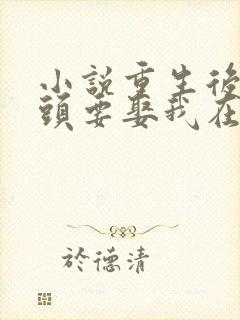 小說重生後
頭要娶我在
於德清